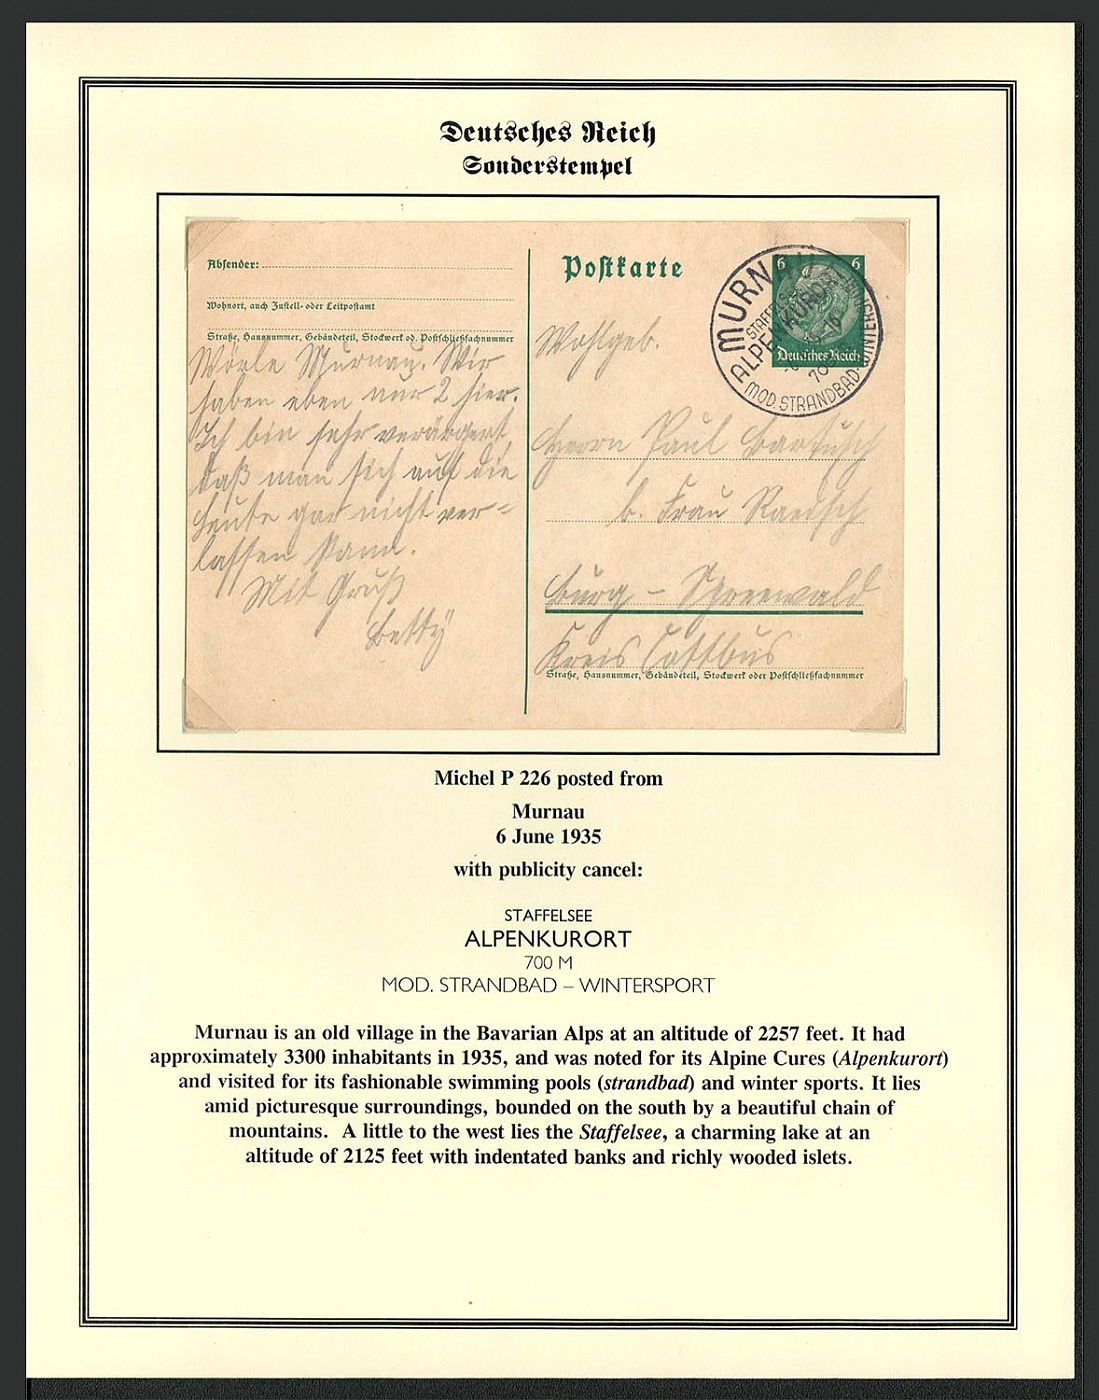 Deutsches Reich
Sonderstempel
Absender:
Wohnort, auch Zustell- oder Leitpostamt
Straße, Hausnummer, Gebäudeteil, Stockwerk od. Postschließfachnummer
Murnau. Wir
haben eben nur 2 hier.
Ich bin sehr verärgert,
daß man sich auf die
Leute gar nicht ver-
lassen kann.
Mit Gruß
Betty
Postkarte
6 6
Deutsches Reich
MURNAU
STAFFELSEE
ALPENKURORT
700
MOD. STRANDBAD-WINTERSPORT
Wohlgeb.
Herrn Paul
b. Frau
Burg - Spreewald
Kreis Cottbus
Straße, Hausnummer, Gebäudeteil, Stockwerk oder Postschließfachnummer
Michel P 226 posted from
Murnau
6 June 1935
with publicity cancel:
STAFFELSEE
ALPENKURORT
700 M
MOD. STRANDBAD – WINTERSPORT
Murnau is an old village in the Bavarian Alps at an altitude of 2257 feet. It had
approximately 3300 inhabitants in 1935, and was noted for its Alpine Cures (Alpenkurort)
and visited for its fashionable swimming pools (strandbad) and winter sports. It lies
amid picturesque surroundings, bounded on the south by a beautiful chain of
mountains. A little to the west lies the Staffelsee, a charming lake at an
altitude of 2125 feet with indentated banks and richly wooded islets.